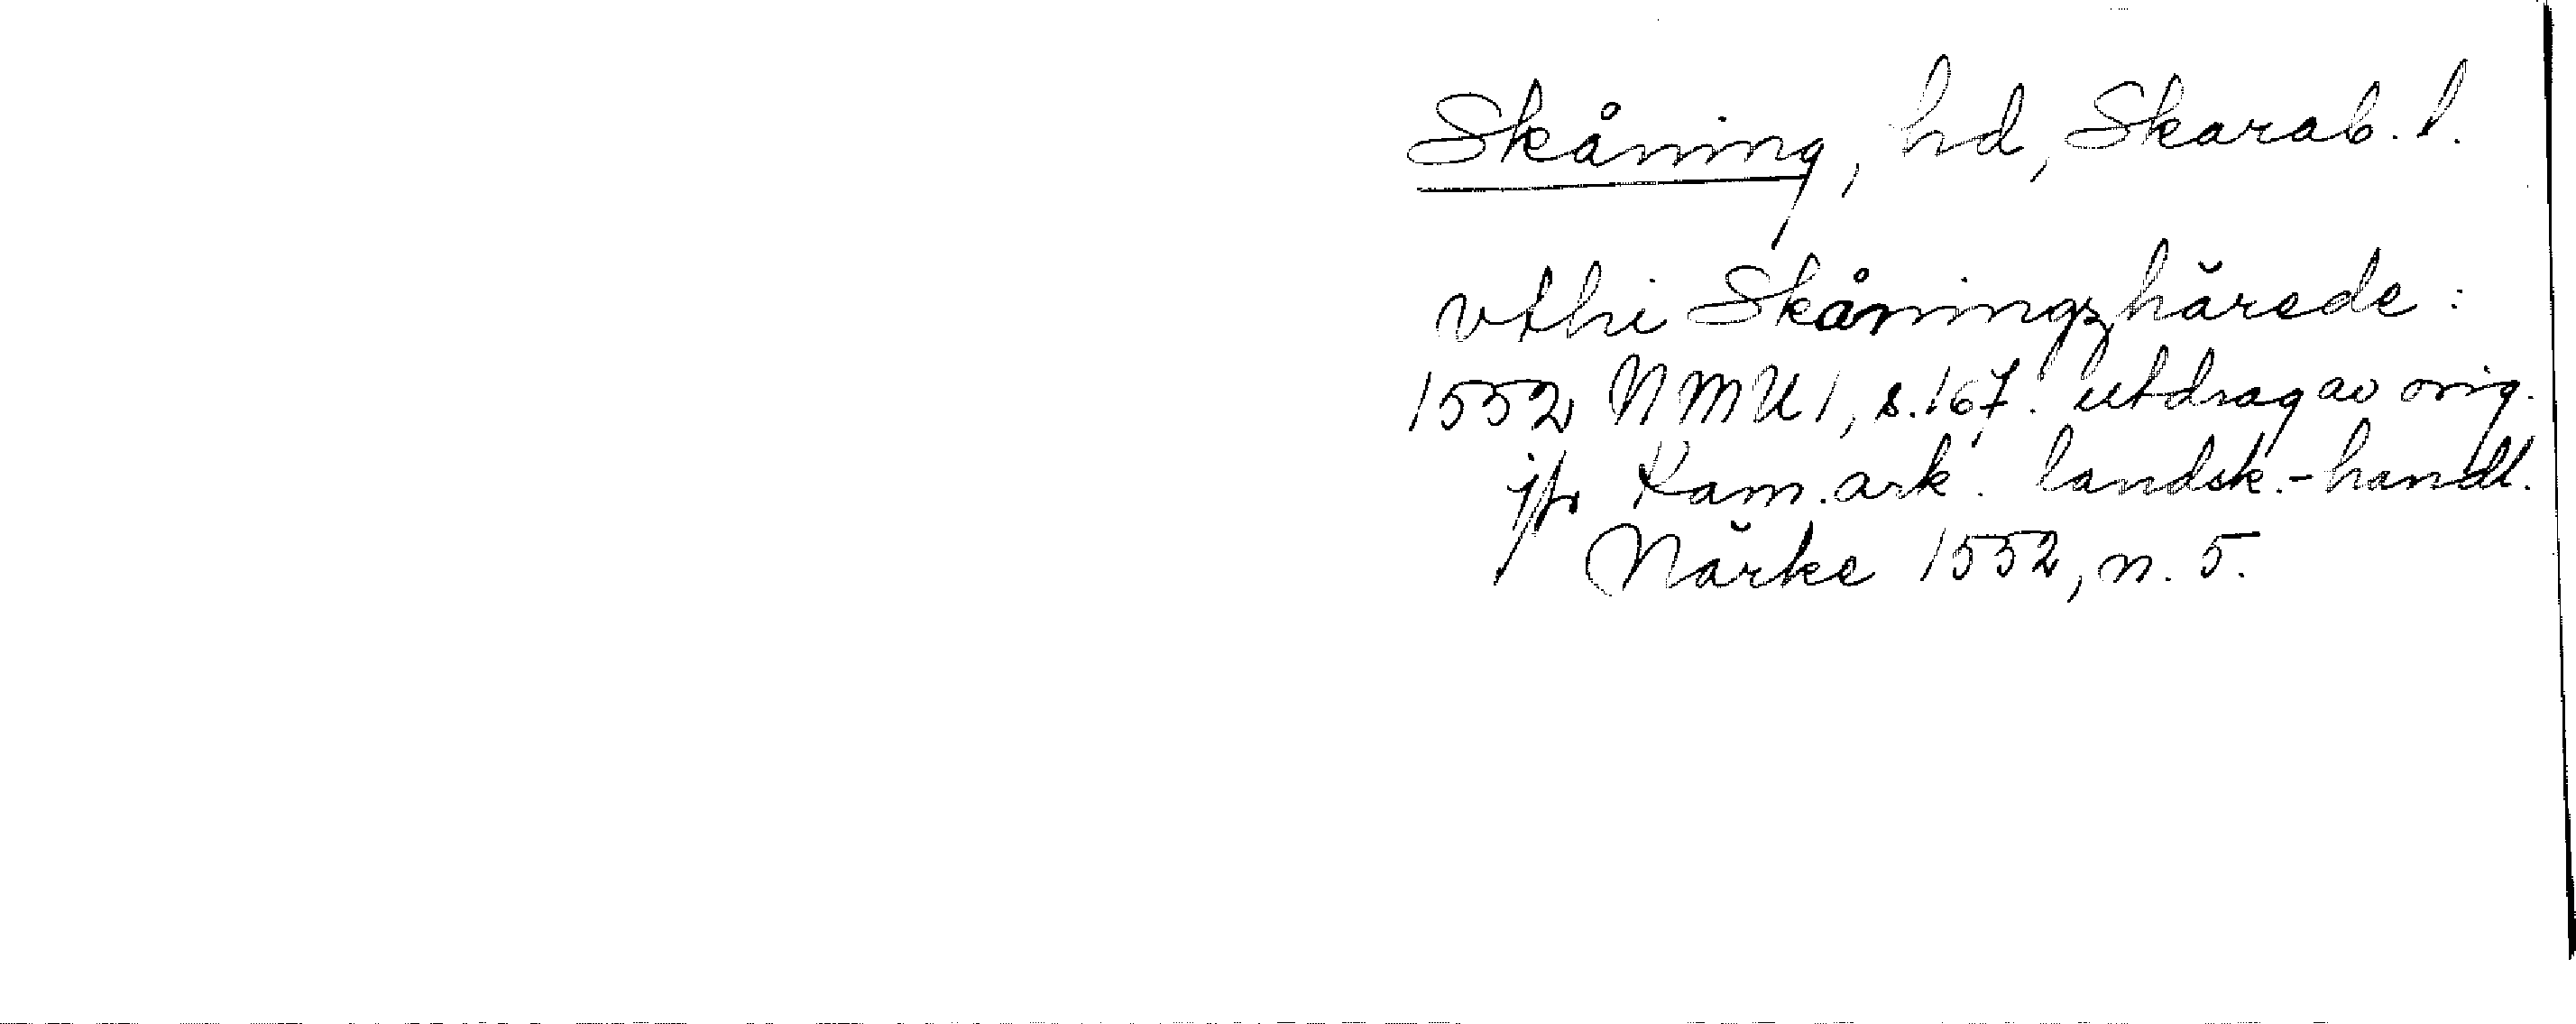 Skåning, hd, Skarab. l.
vthi Skåningzhärede:
1552 NMU 1, s. 167. utdrag av orig.
jfr Kam. ark. landsk.-handl.
Närke 1552, n. 5.